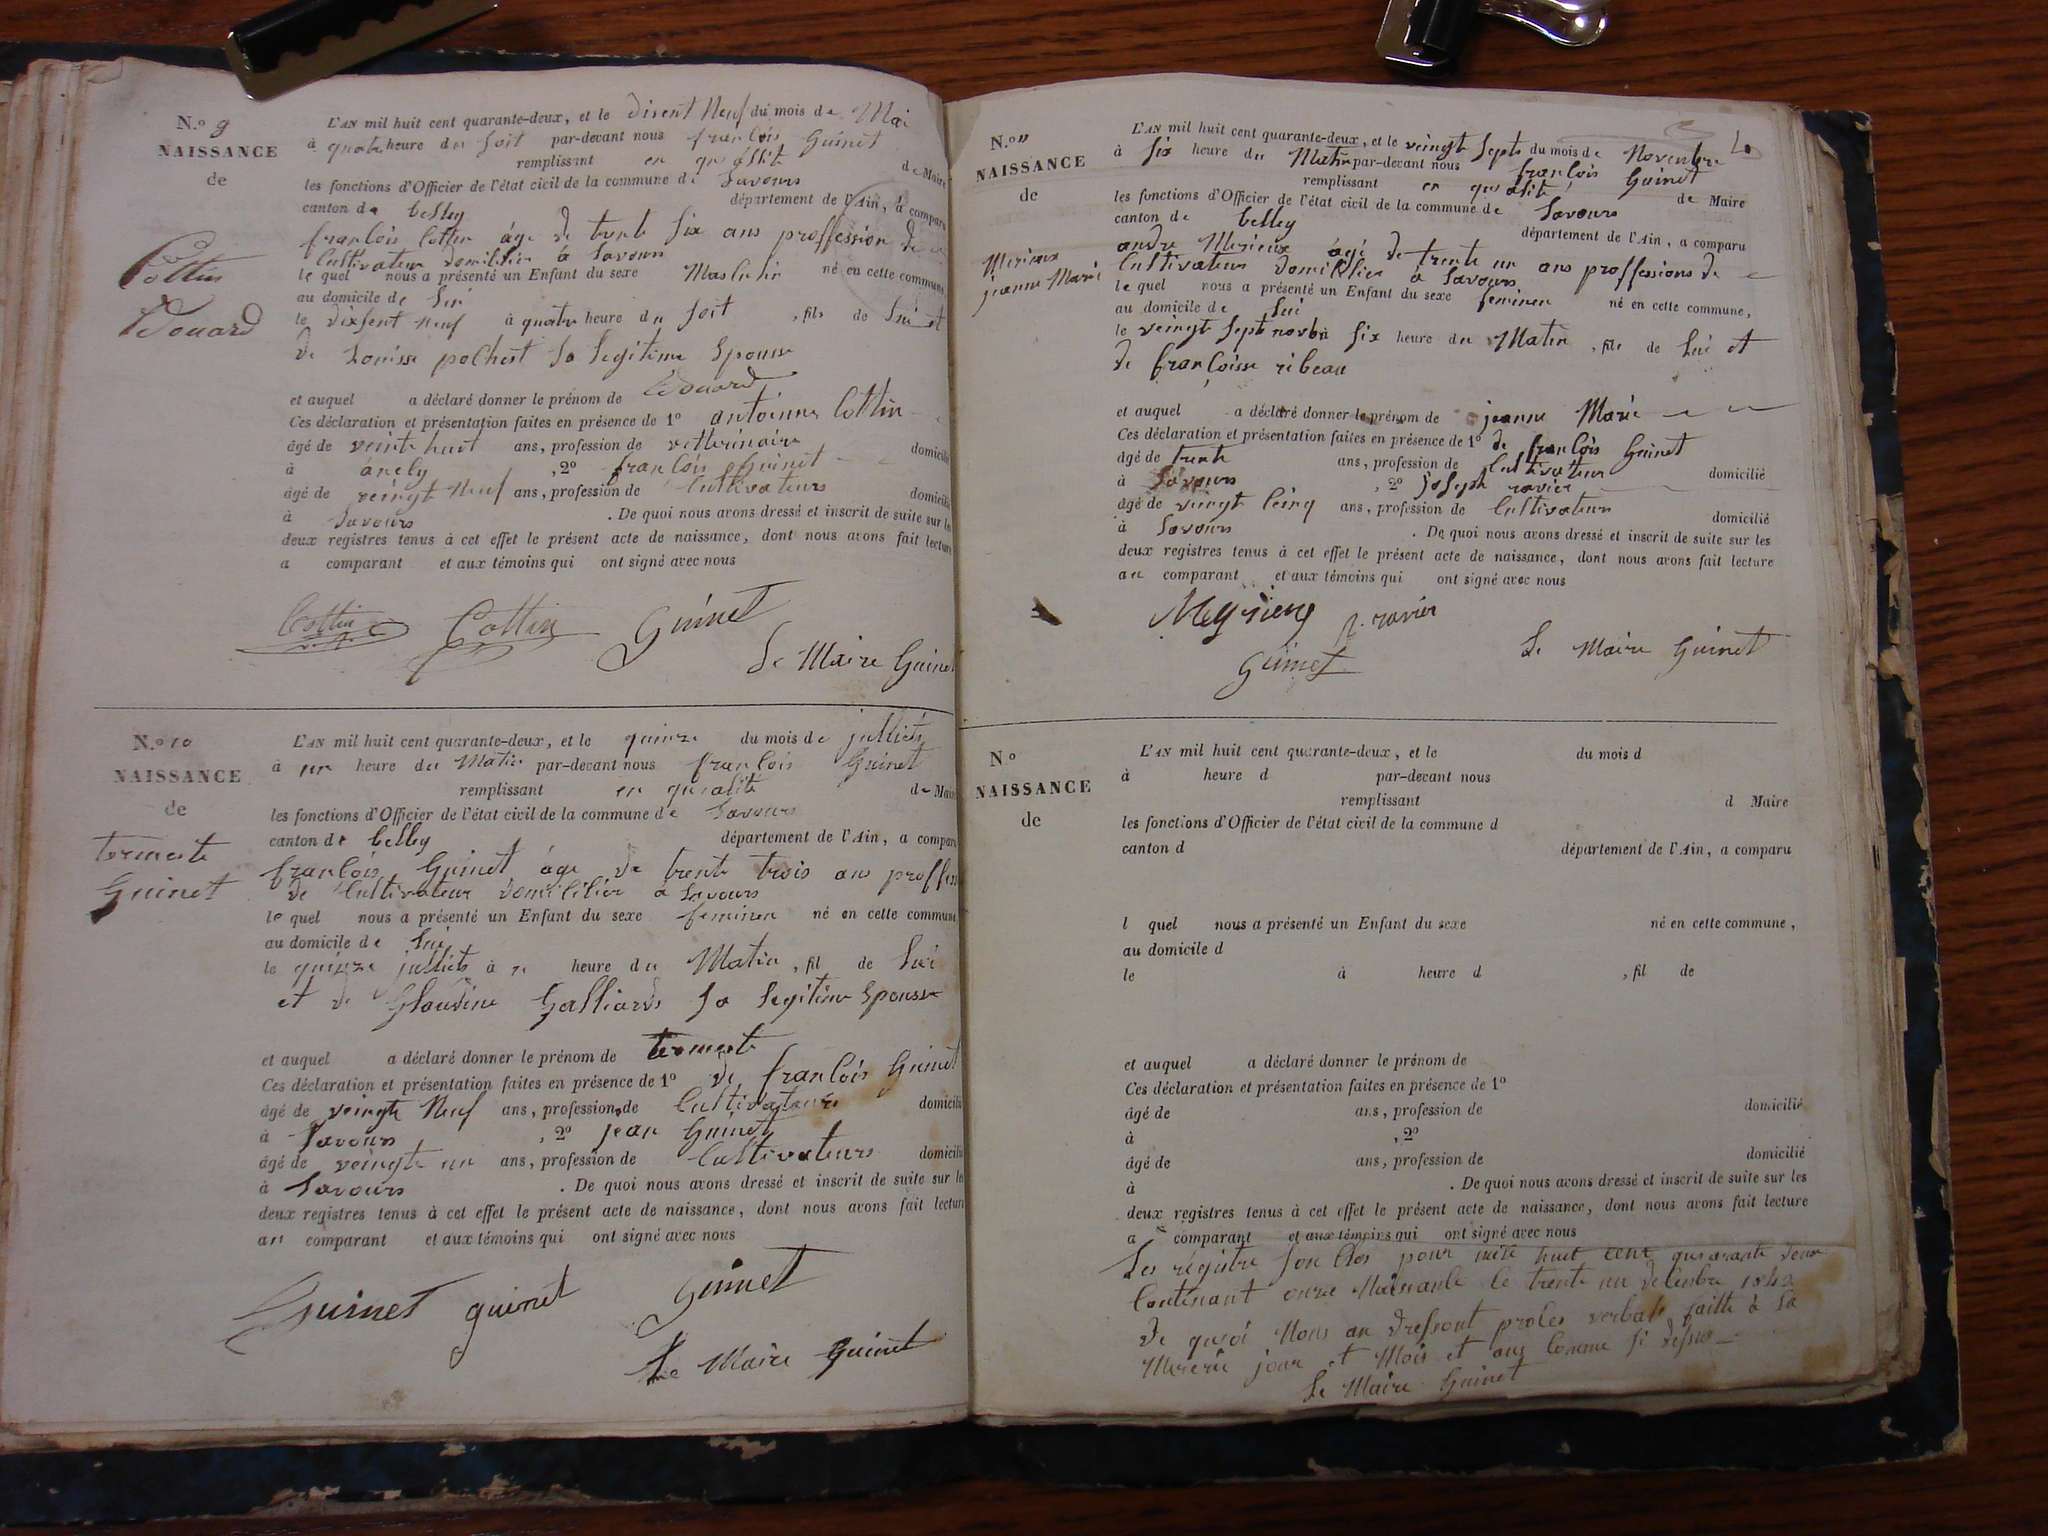 N.º 9
NAISSANCE
de
Cottin
Edouard
L'AN mil huit cent quarante-deux, et le disent Neuf du mois de Mai
à quatre heure du soit par-devant nous franlois Guinet
remplissant en quallité de Maire
les fonctions d'Officier de l'état civil de la commune de Savours
canton de belley département de l'Ain, a comparu
franlois Cottin âge de trente six ans proffession de
Cultivateur domicilier à Savours
le quel nous a présenté un Enfant du sexe Masculin né en cette commune
au domicile de lui
le dixsent neuf à quatre heure du soit , fils de lui et
de Louisse polhest sa legitime Epousse
et auquel a déclaré donner le prénom de Edouard
Ces déclaration et présentation faites en présence de 1º antoinne Cottin
âgé de veinte huit ans, profession de vetterinaire domicilié
à ancly , 2º franlois Guinet
âgé de veingt Neuf ans, profession de Cultivateurs domicilié
à Savours . De quoi nous avons dressé et inscrit de suite sur les
deux registres tenus à cet effet le présent acte de naissance, dont nous avons fait lecture
a comparant et aux témoins qui ont signé avec nous
Cottin Cottin Guinet
Le Maire Guinet
N.º 10
NAISSANCE
de
termeste
Guinet
L'AN mil huit cent quarante-deux, et le quinze du mois de julliets
à un heure du Matin par-devant nous franlois Guinet
remplissant en qualité de Maire
les fonctions d'Officier de l'état civil de la commune de Savours
canton de belley département de l'Ain, a comparu
franlois Guinet âge de trente trois ans proffession
de Cultivateur domicilier à Savours
le quel nous a présenté un Enfant du sexe feminen né en cette commune
au domicile de lui
le quinze julliets à un heure du Matin , fil de lui
et de Glaudine Galliards sa legitime Epousse
et auquel a déclaré donner le prénom de termeste
Ces déclaration et présentation faites en présence de 1º de franlois Guinet
âgé de veingte Neuf ans, profession de Cultivateurs domicilié
à Savours , 2º jean Guinet
âgé de veingte un ans, profession de Cultivateurs domicilié
à Savours . De quoi nous avons dressé et inscrit de suite sur les
deux registres tenus à cet effet le présent acte de naissance, dont nous avons fait lecture
au comparant et aux témoins qui ont signé avec nous
Guinet guinet Guinet
Le Maire Guinet
N.º 11
NAISSANCE
de
Mirieux
jeanne Marie
L'AN mil huit cent quarante-deux, et le veingt Septs du mois de Novenbre
à six heure du Matin par-devant nous franlois Guinet
remplissant en qualité de Maire
les fonctions d'Officier de l'état civil de la commune de Savours
canton de belley département de l'Ain, a comparu
andre Mirieux âgé de trente un ans proffessions de
Cultivateur domicilier à Savours
le quel nous a présenté un Enfant du sexe feminen né en cette commune,
au domicile de lui
le veingt Sept novbre six heure du Matin , fils de lui et
de franloisse ribeau
et auquel a déclaré donner le prénom de jeanne Marie
Ces déclaration et présentation faites en présence de 1º de franlois Guinet
âgé de trente ans, profession de Cultivateur domicilié
à Savours , 2º joseph ravier
âgé de veingt Cinq ans, profession de Cultivateur domicilié
à Savours . De quoi nous avons dressé et inscrit de suite sur les
deux registres tenus à cet effet le présent acte de naissance, dont nous avons fait lecture
au comparant et aux témoins qui ont signé avec nous
Meyrieux J. ravier
Guinet Le Maire Guinet
N.º
NAISSANCE
de
L'AN mil huit cent quarante-deux, et le du mois d
à heure d par-devant nous
remplissant d Maire
les fonctions d'Officier de l'état civil de la commune d
canton d département de l'Ain, a comparu
l quel nous a présenté un Enfant du sexe né en cette commune,
au domicile d
le à heure d , fil de
et auquel a déclaré donner le prénom de
Ces déclaration et présentation faites en présence de 1º
âgé de ans, profession de domicilié
à , 2º
âgé de ans, profession de domicilié
à . De quoi nous avons dressé et inscrit de suite sur les
deux registres tenus à cet effet le présent acte de naissance, dont nous avons fait lecture
a comparant et aux témoins qui ont signé avec nous
Les régistre son Clos pour mile huit cent quarante deux
Contenant onze Naissanse le trente un delenbre 1842
de quoi Nous an dressont proles verbals faitte à la
Mererie jour et Mois et ans Comme si dessus
Le Maire Guinet